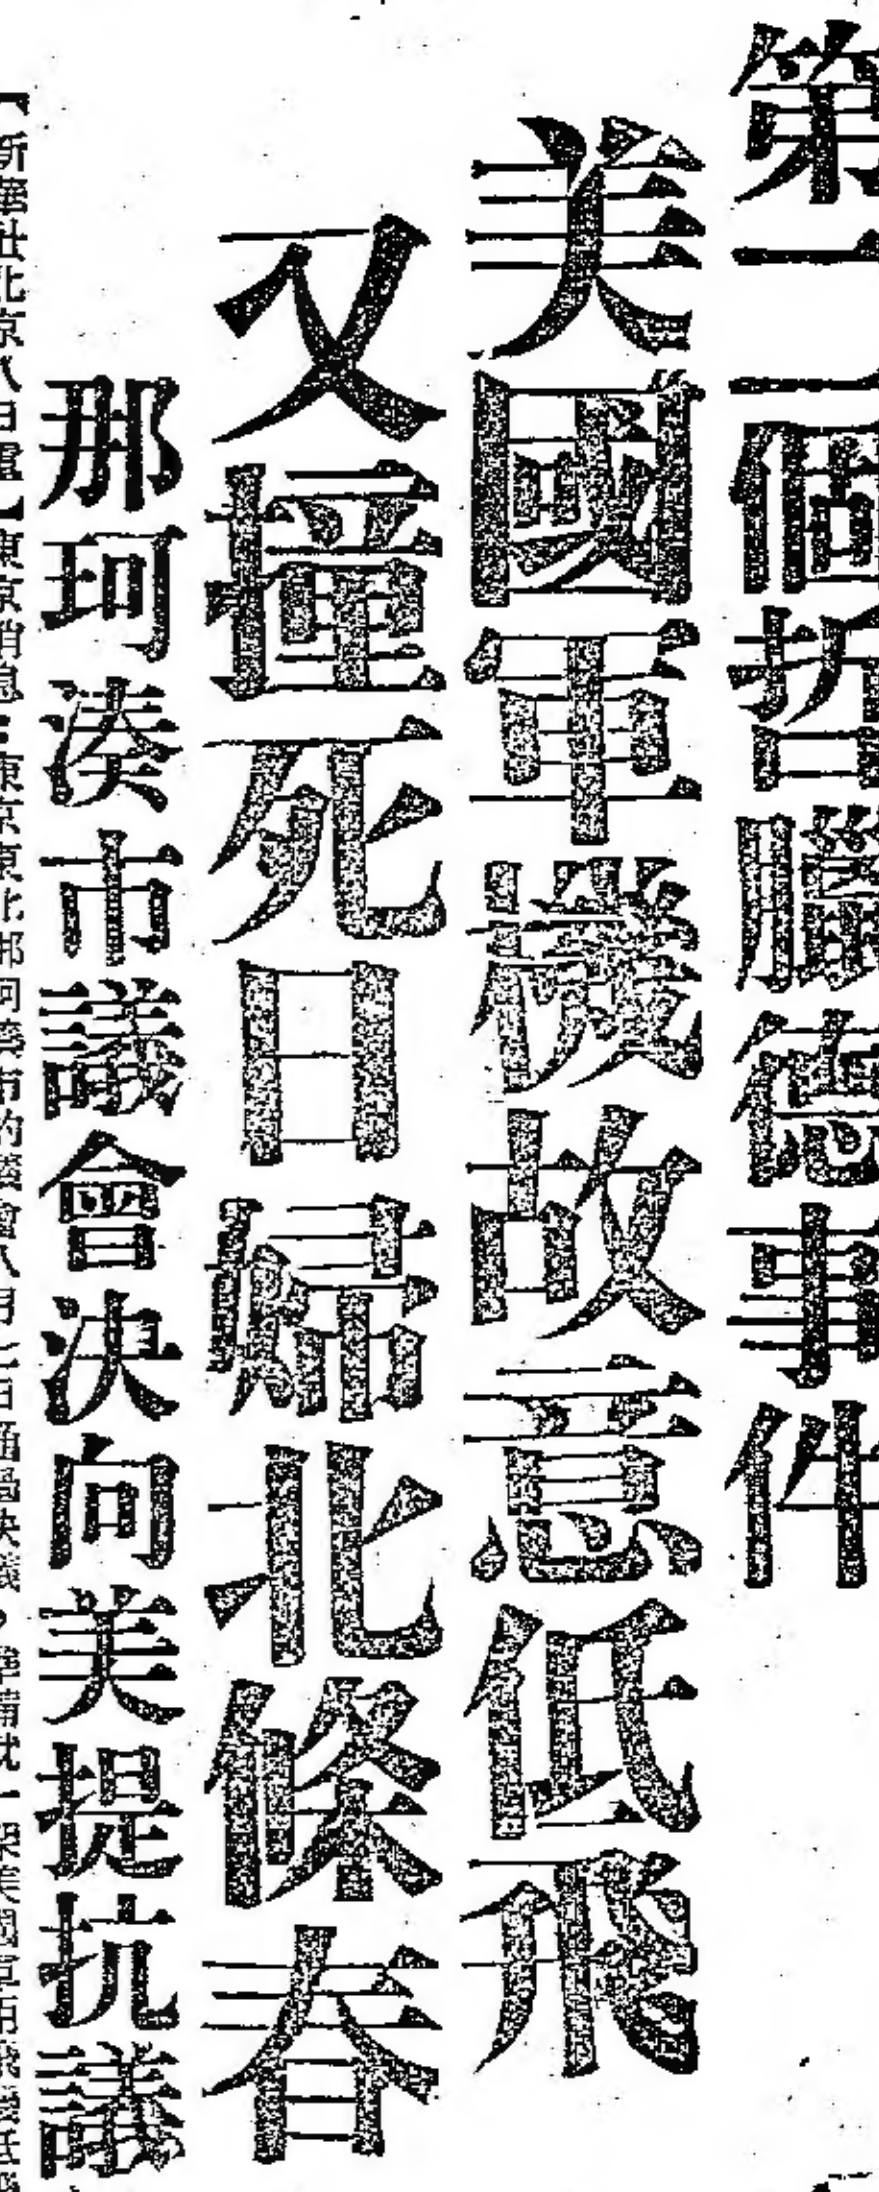 第二個哲騰德事件
美國軍機故意低飛
又撞死日婦北條春
那珂湊市議會決向美提抗議
【新華社北京八日電】東京消息：東京東北那珂湊市的議會八月七日通過決議，準備就一架美國軍用飛機低飛